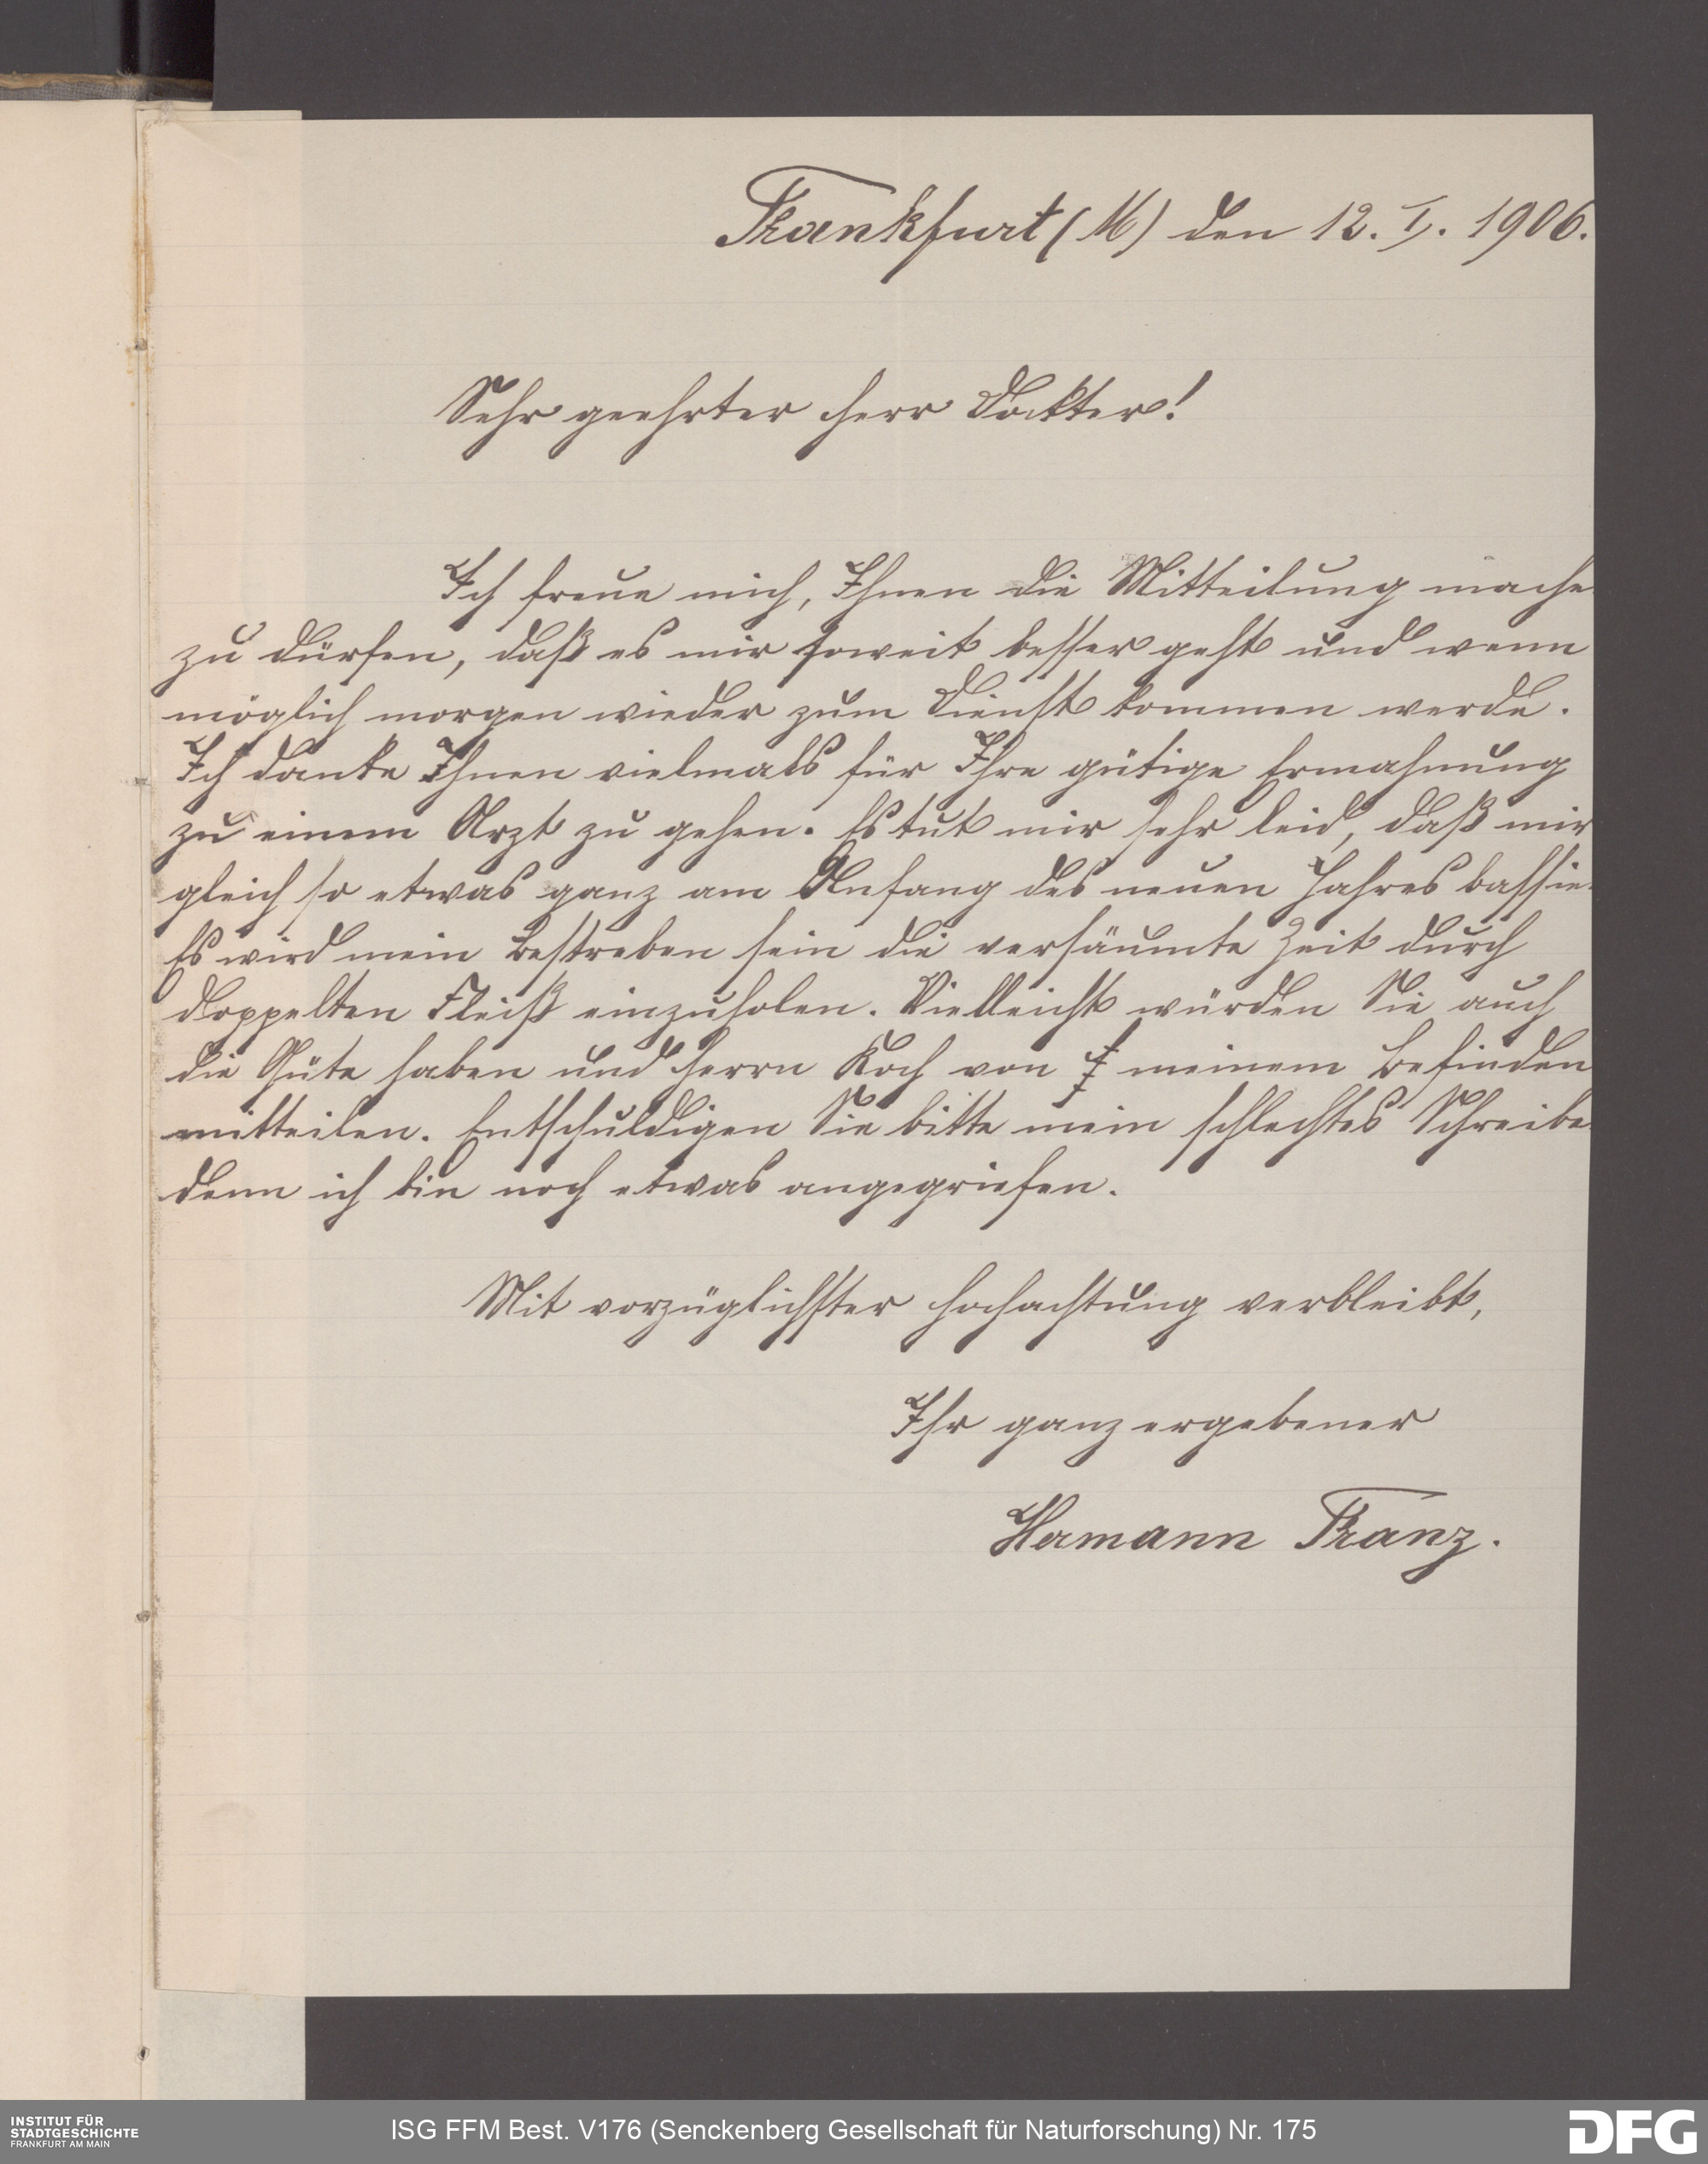 Frankfurt (M) den 12. I. 1906.
Sehr geehrter Herr Dockter!
Ich freue mich, Ihnen die Mitteilung mache
zu dürfen, daß es mir soweit besser geht und wenn
möglich morgen wieder zum Dienst kommen werde.
Ich danke Ihnen vielmals für Ihre gütige Ermahnung
zu einem Arzt zu gehen. Es tut mir sehr leid, daß mir
gleich so etwas ganz am Anfang des neuen Jahres bassie
Es wird mein Bestreben sein die versäumte Zeit durch
doppelten Fleiß einzuholen. Vielleicht würden Sie auch
die Güte haben und Herrn Koch von meinem Befinden
mitteilen. Entschuldigen Sie bitte mein schlechtes Schreibe
denn ich bin noch etwas angegriefen.
Mit vorzüglichster Hochachtung verbleibt,
Ihr ganz ergebener
Hermann Franz.
INSTITUT FÜR
STADTGESCHICHTE
FRANKFURT AM MAIN
ISG FFM Best. V176 (Senckenberg Gesellschaft für Naturforschung) Nr. 175
DFG